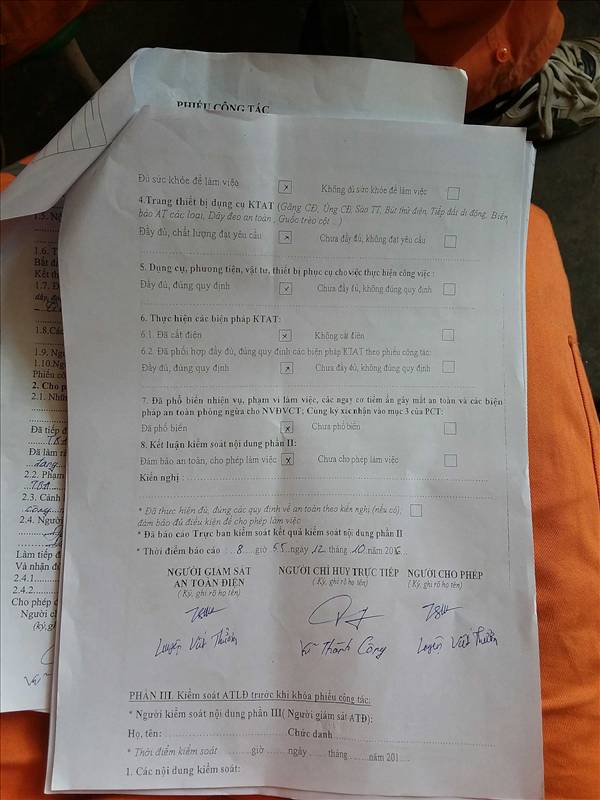 PHIẾU CÔNG TÁC
Đủ sức khỏe để làm việc Không đủ sức khỏe để làm việc
4.Trang thiết bị dụng cụ KTAT (Găng CĐ, Ủng CĐ, Sào TT, Bút thử điện, Tiếp đất di động, Biển
báo AT các loại, Dây đeo an toàn, Guốc trèo cột...)
Đầy đủ, chất lượng đạt yêu cầu Chưa đầy đủ, không đạt yêu cầu
5. Dụng cụ, phương tiện, vật tư, thiết bị phục cụ cho việc thực hiện công việc :
Đầy đủ, đúng quy định Chưa đầy đủ, không đúng quy định
6. Thực hiện các biện pháp KTAT:
6.1. Đã cắt điện Không cắt điên
6.2. Đã phối hợp đầy đủ, đúng quy định các biện pháp KTAT theo phiếu công tác:
Đầy đủ, đúng quy định Chưa đầy đủ, không đúng quy định
7. Đã phổ biến nhiệm vụ, phạm vi làm việc, các nguy cơ tiềm ẩn gây mất an toàn và các biện
pháp an toàn phòng ngừa cho NVĐVCT; Cùng ký xác nhận vào mục 3 của PCT:
Đã phổ biến Chưa phổ biến
8. Kết luận kiểm soát nội dung phần II:
Đảm bảo an toàn, cho phép làm việc Chưa cho phép làm việc
Kiến nghị :
* Đã thực hiện đủ, đúng các quy định về an toàn theo kiến nghị (nếu có);
đảm bảo đủ điều kiện để cho phép làm việc
* Đã báo cáo Trực ban kiểm soát kết quả kiểm soát nội dung phần II
* Thời điểm báo cáo : ..8.... giờ 55..ngày 12 tháng .10.năm 2016...
NGƯỜI GIÁM SÁT NGƯỜI CHỈ HUY TRỰC TIẾP NGƯỜI CHO PHÉP
AN TOÀN ĐIỆN ( Ký, ghi rõ họ tên) ( Ký, ghi rõ họ tên)
( Ký, ghi rõ họ tên)
Luyện Viết Thưởng Vũ Thành Công Luyện Viết Thưởng
PHẦN III. Kiểm soát ATLĐ trước khi khóa phiếu công tác:
* Người kiểm soát nội dung phần III( Người giám sát ATĐ):
Họ, tên: Chức danh
* Thời điểm kiểm soát giờ ngày tháng năm 201
1. Các nội dung kiểm soát:
1.6. T
Bắt đ
Kết th
1.7. Đ
1.8.Các
1.9. Ngư
1.10.Ng
Phiếu cô
2. Cho p
2.1. Nhữ
Đã tiếp đ
Đã làm rà
2.2. Phạm
2.3. Cảnh
2.4. Người
Làm tiếp đ
Và nhận đ
2.4.1
2.4.2
Cho phép đ
Người ch
(ký,ghi